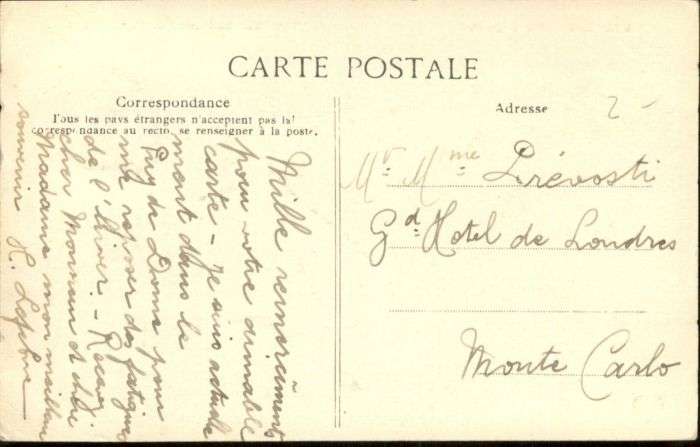 CARTE POSTALE
Correspondance
Tous les pays étrangers n'acceptent pas la
correspondance au recto, se renseigner à la poste.
Mille remerciements
pour votre aimable
carte - Je suis actuelle
ment dans le
Puy de Dome pour
me reposer des fatigues
de l'hiver. - Recevez
cher Monsieur et chère
Madame mon meilleur
souvenir
Adresse
2 -
Mr Mme Prévosti
Gd Hotel de Londres
Monte Carlo